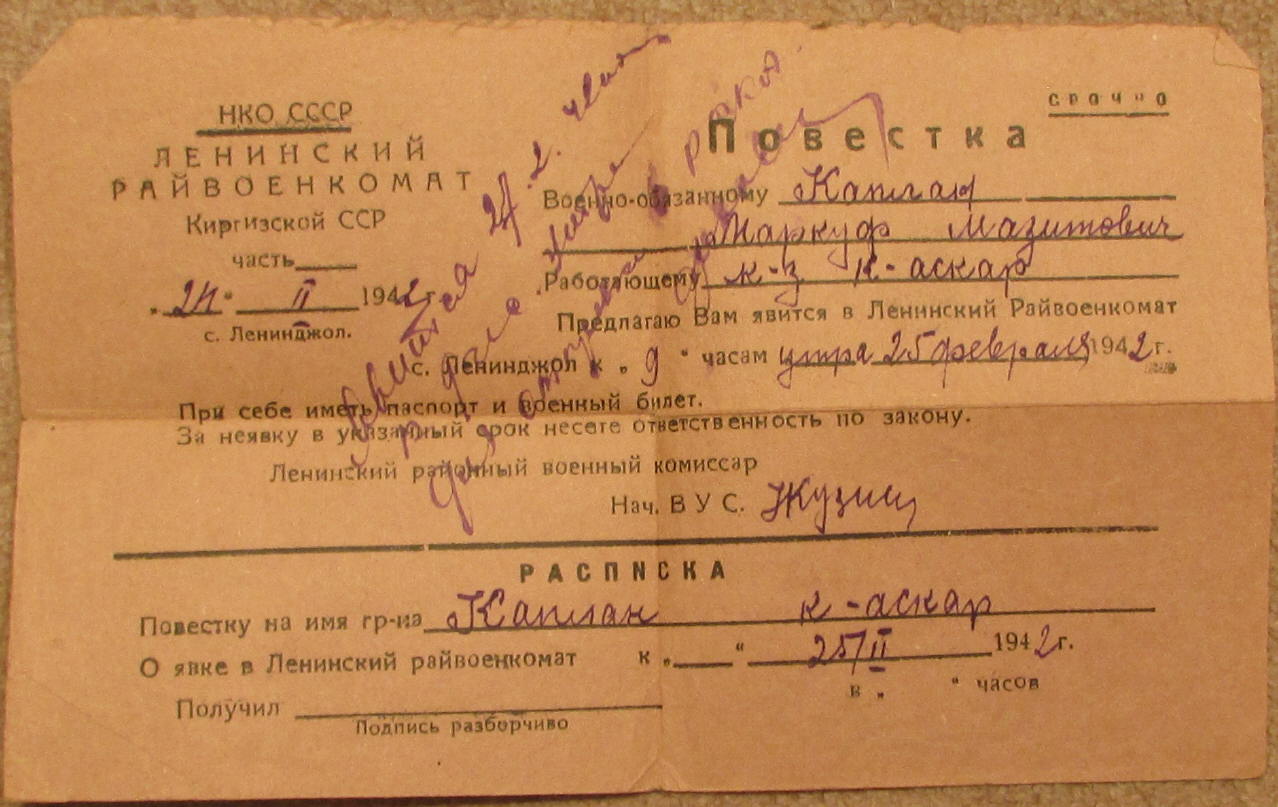 НКО СССР
ЛЕНИНСКИЙ
РАЙВОЕНКОМАТ
Киргизской ССР
часть
„24“ II 1942 г.
с. Ленинджол.
срочно
Повестка
Военно-обязанному Каплан
Маркуф Мазитович
Работающему к-з К-аскар
Предлагаю Вам явится в Ленинский Райвоенкомат
с. Ленинджол к „9“ часам утра 25 февраля 1942 г.
При себе иметь паспорт и военный билет.
За неявку в указанный срок несете ответственность по закону.
Ленинский районный военный комиссар
Нач. ВУС.
РАСПИСКА
Повестку на имя гр-на Каплан к-аскар
О явке в Ленинский райвоенкомат к „ “ 25/II 1942 г.
в „ “ часов
Получил
Подпись разборчиво